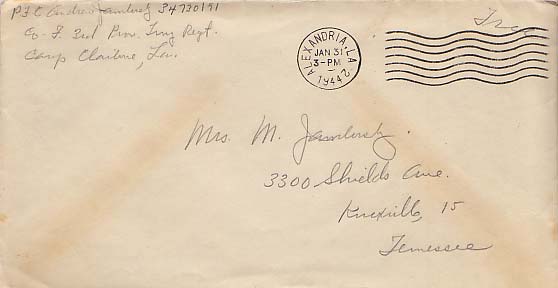 Pfc Andrew 34730191
Co. F 3rd Bn. Trng Regt.
Camp Claiborne, La.
Free
ALEXANDRIA, LA.
JAN 31
3-PM
1944
2
Mrs. M.
3300 Shields Ave.
Knoxville, 15
Tennessee